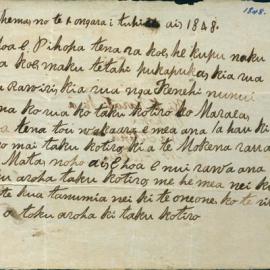 1848.
hema, no te tongara i tuhia ai, 1848.
hoa e Pihopa tena ra koe, he kupu naku
a koe, maku tetahi pukapuka, kia rua
a Rawiri, kia rua nga Kenehi nunui
na ko rua ko taku kotiro ko Marara,
a tena tou e mea ana 'a hau ki
o mai taku kotiro, ki a te Mokena
Mata, noho ai, E hoa e nui rawa ana
aroha taku kotiro, me he mea nei k
te kua tanumia nei ki te oneone, ko te
o toku aroha ki taku kotiro